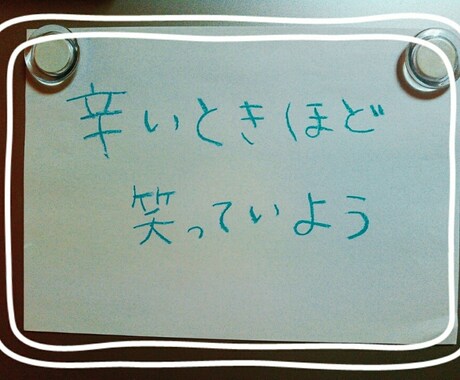 辛いときほど
笑っていよう